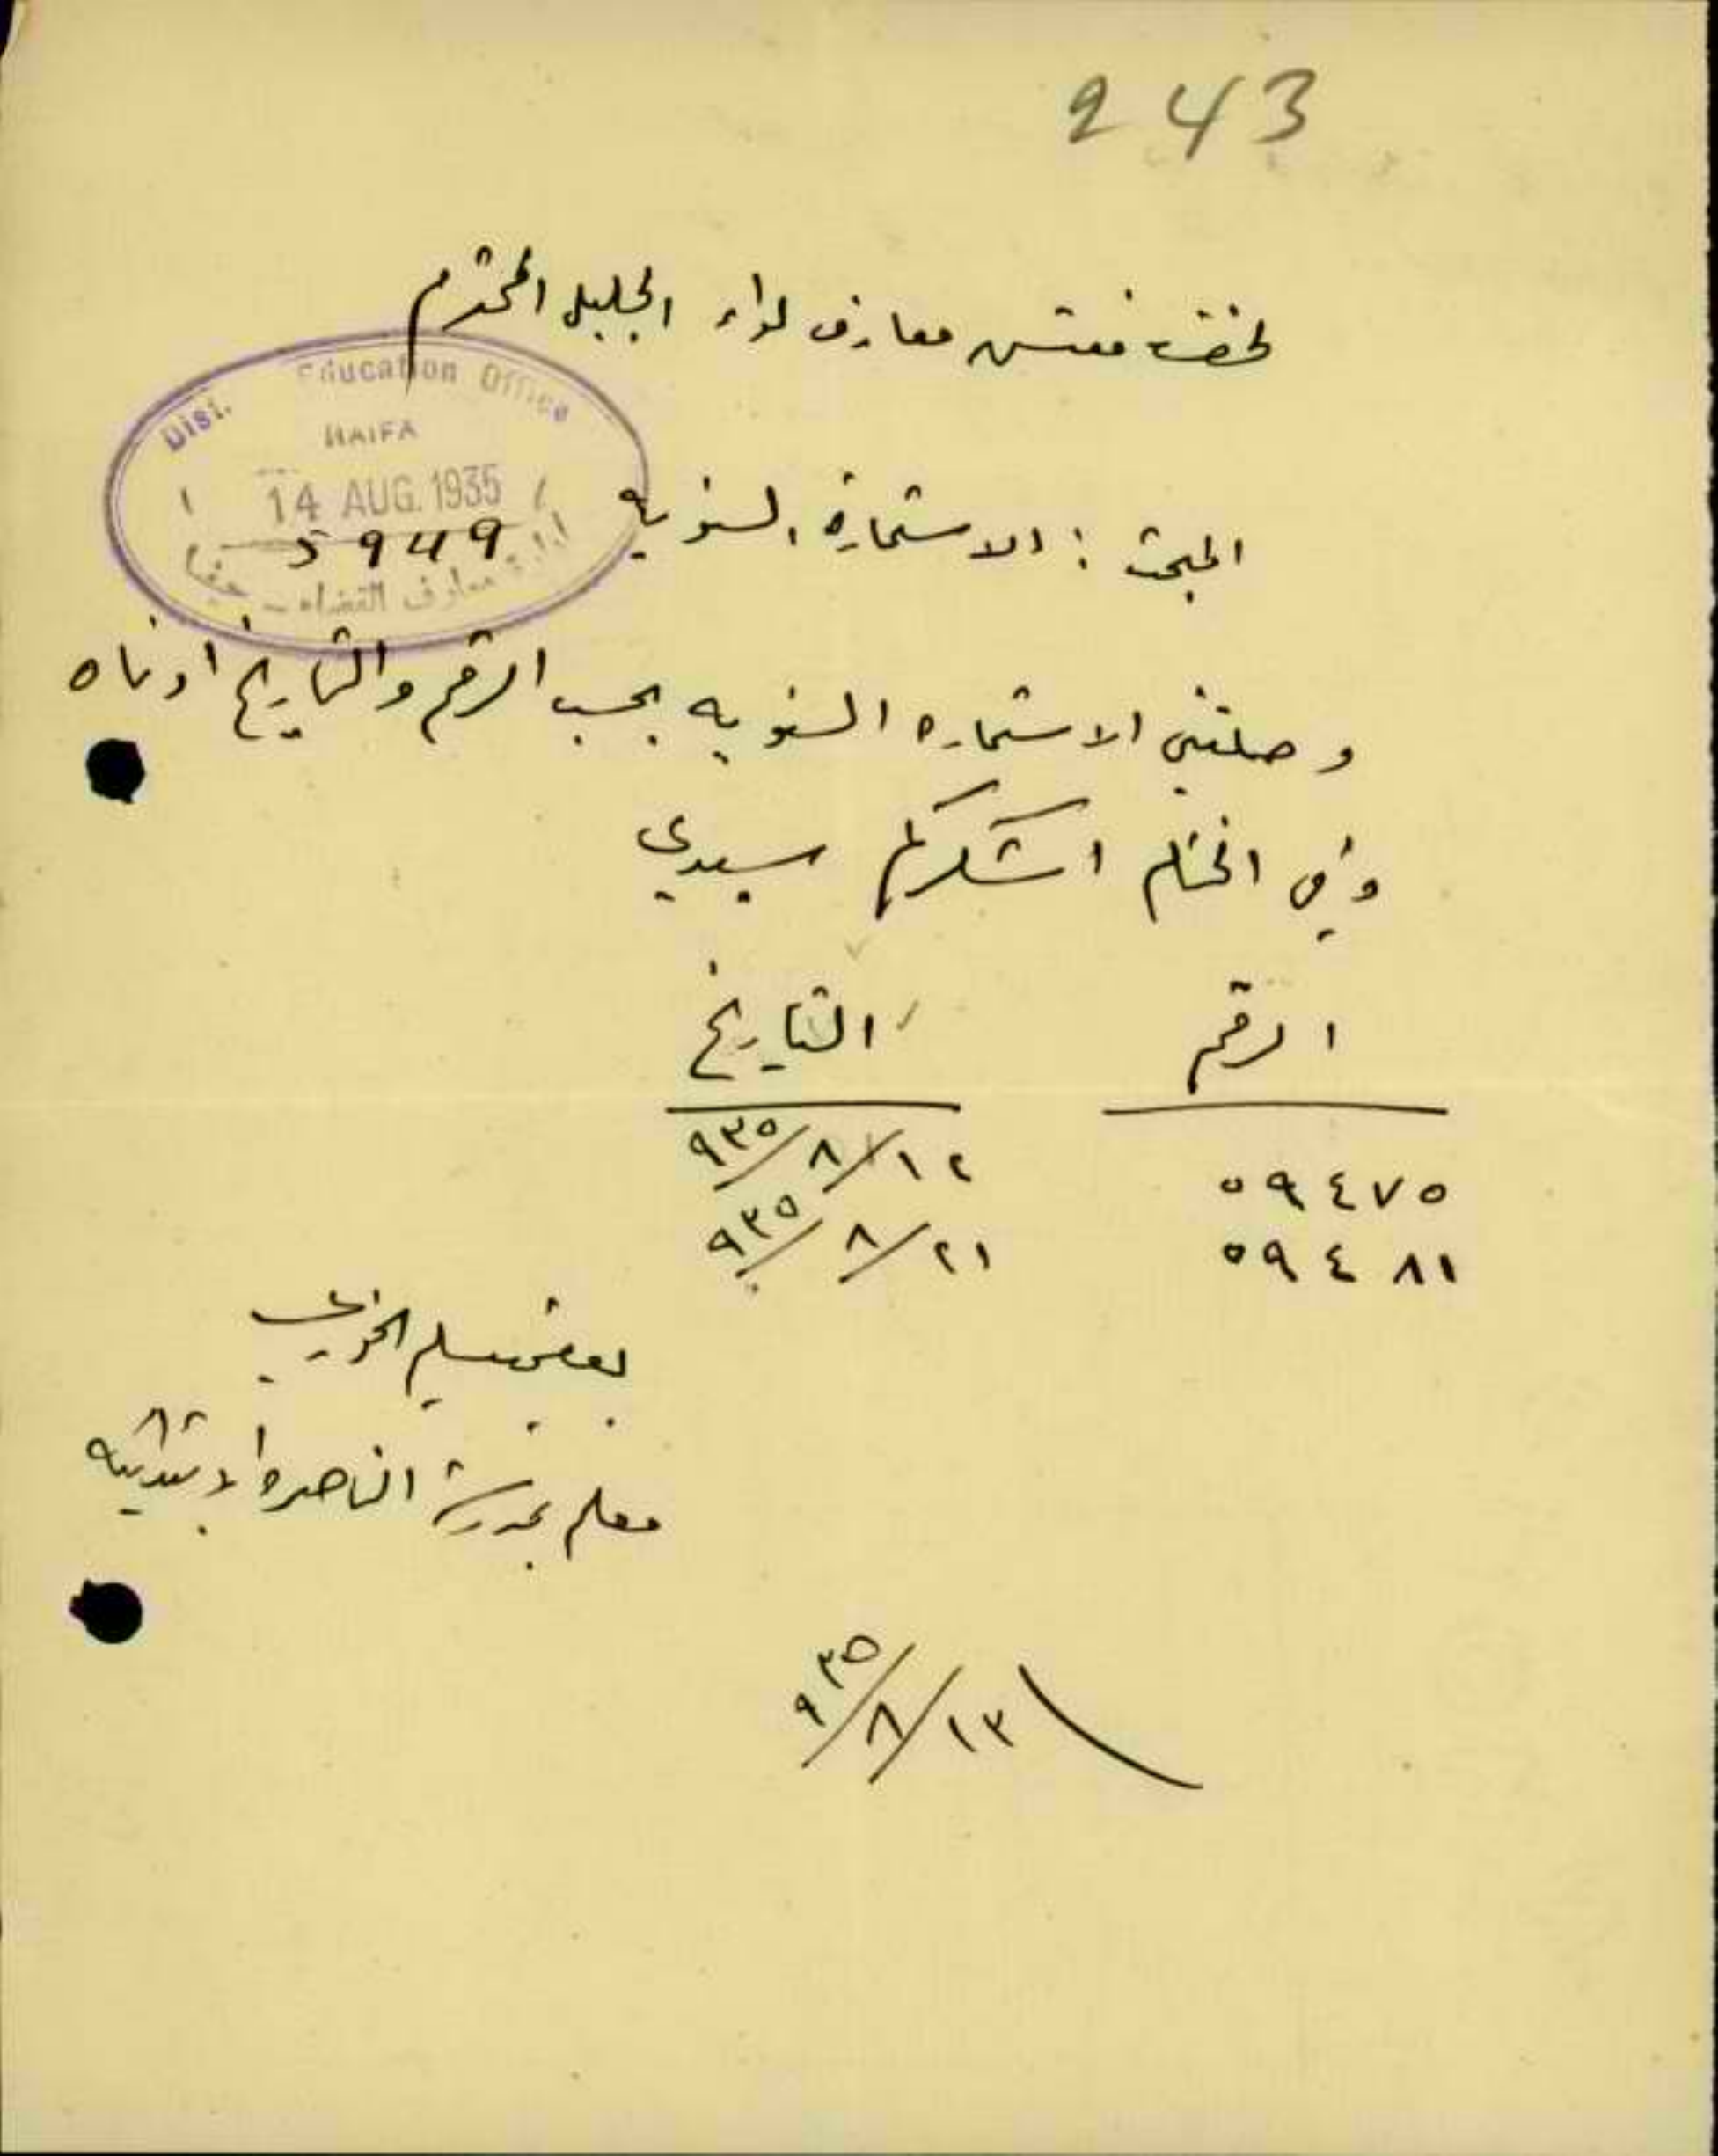 243
لحضرة مفتش معارف لواء الجليل المحترم
Dist. Education Office
HAIFA
14 AUG. 1935
5949
ادارة معارف القضاء - حيفا
المبحث : الاستمارة السنويه
وصلتني الاستماره السنويه بحسب الرقم والتاريخ ادناه
وفي الختام اشكركم سيدي
الرقم التاريخ
٥٩٤٧٥ ١٢/٨/٩٣٥
٥٩٤٨١ ٢١/٨/٩٣٥
سليم الخوري
معلم بمدرسة الناصرة الابتدائيه
١٣/٨/٩٣٥